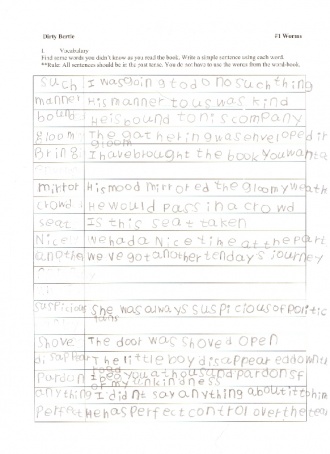 Dirty Bertie #1 Worms
1. Vocabulary
Find some words you didn't know as you read the book. Write a simple sentence using each word.
**Rule: All sentences should be in the past tense. You do not have to use the words from the word-book.
such I was going to do no such thing
manner His manner to us was kind
bound He is bound to his company
gloom The gathering was enveloped in
gloom
Bring I have brought the book you want
mirror His mood mirrored the gloomy weath
crowd He would pass in a crowd
seat Is this seat taken
Nice We had a Nice time at the part
another we've got another ten days journey
suspicious She was always suspicious of politic
ians
shove The door was shoved open
disappear The little boy disappeared down t
road
Pardon I beg you a thousand pardons f
or my unkindness
anything I didnt say anything about it to him
Perfect He has Perfect control over the tea